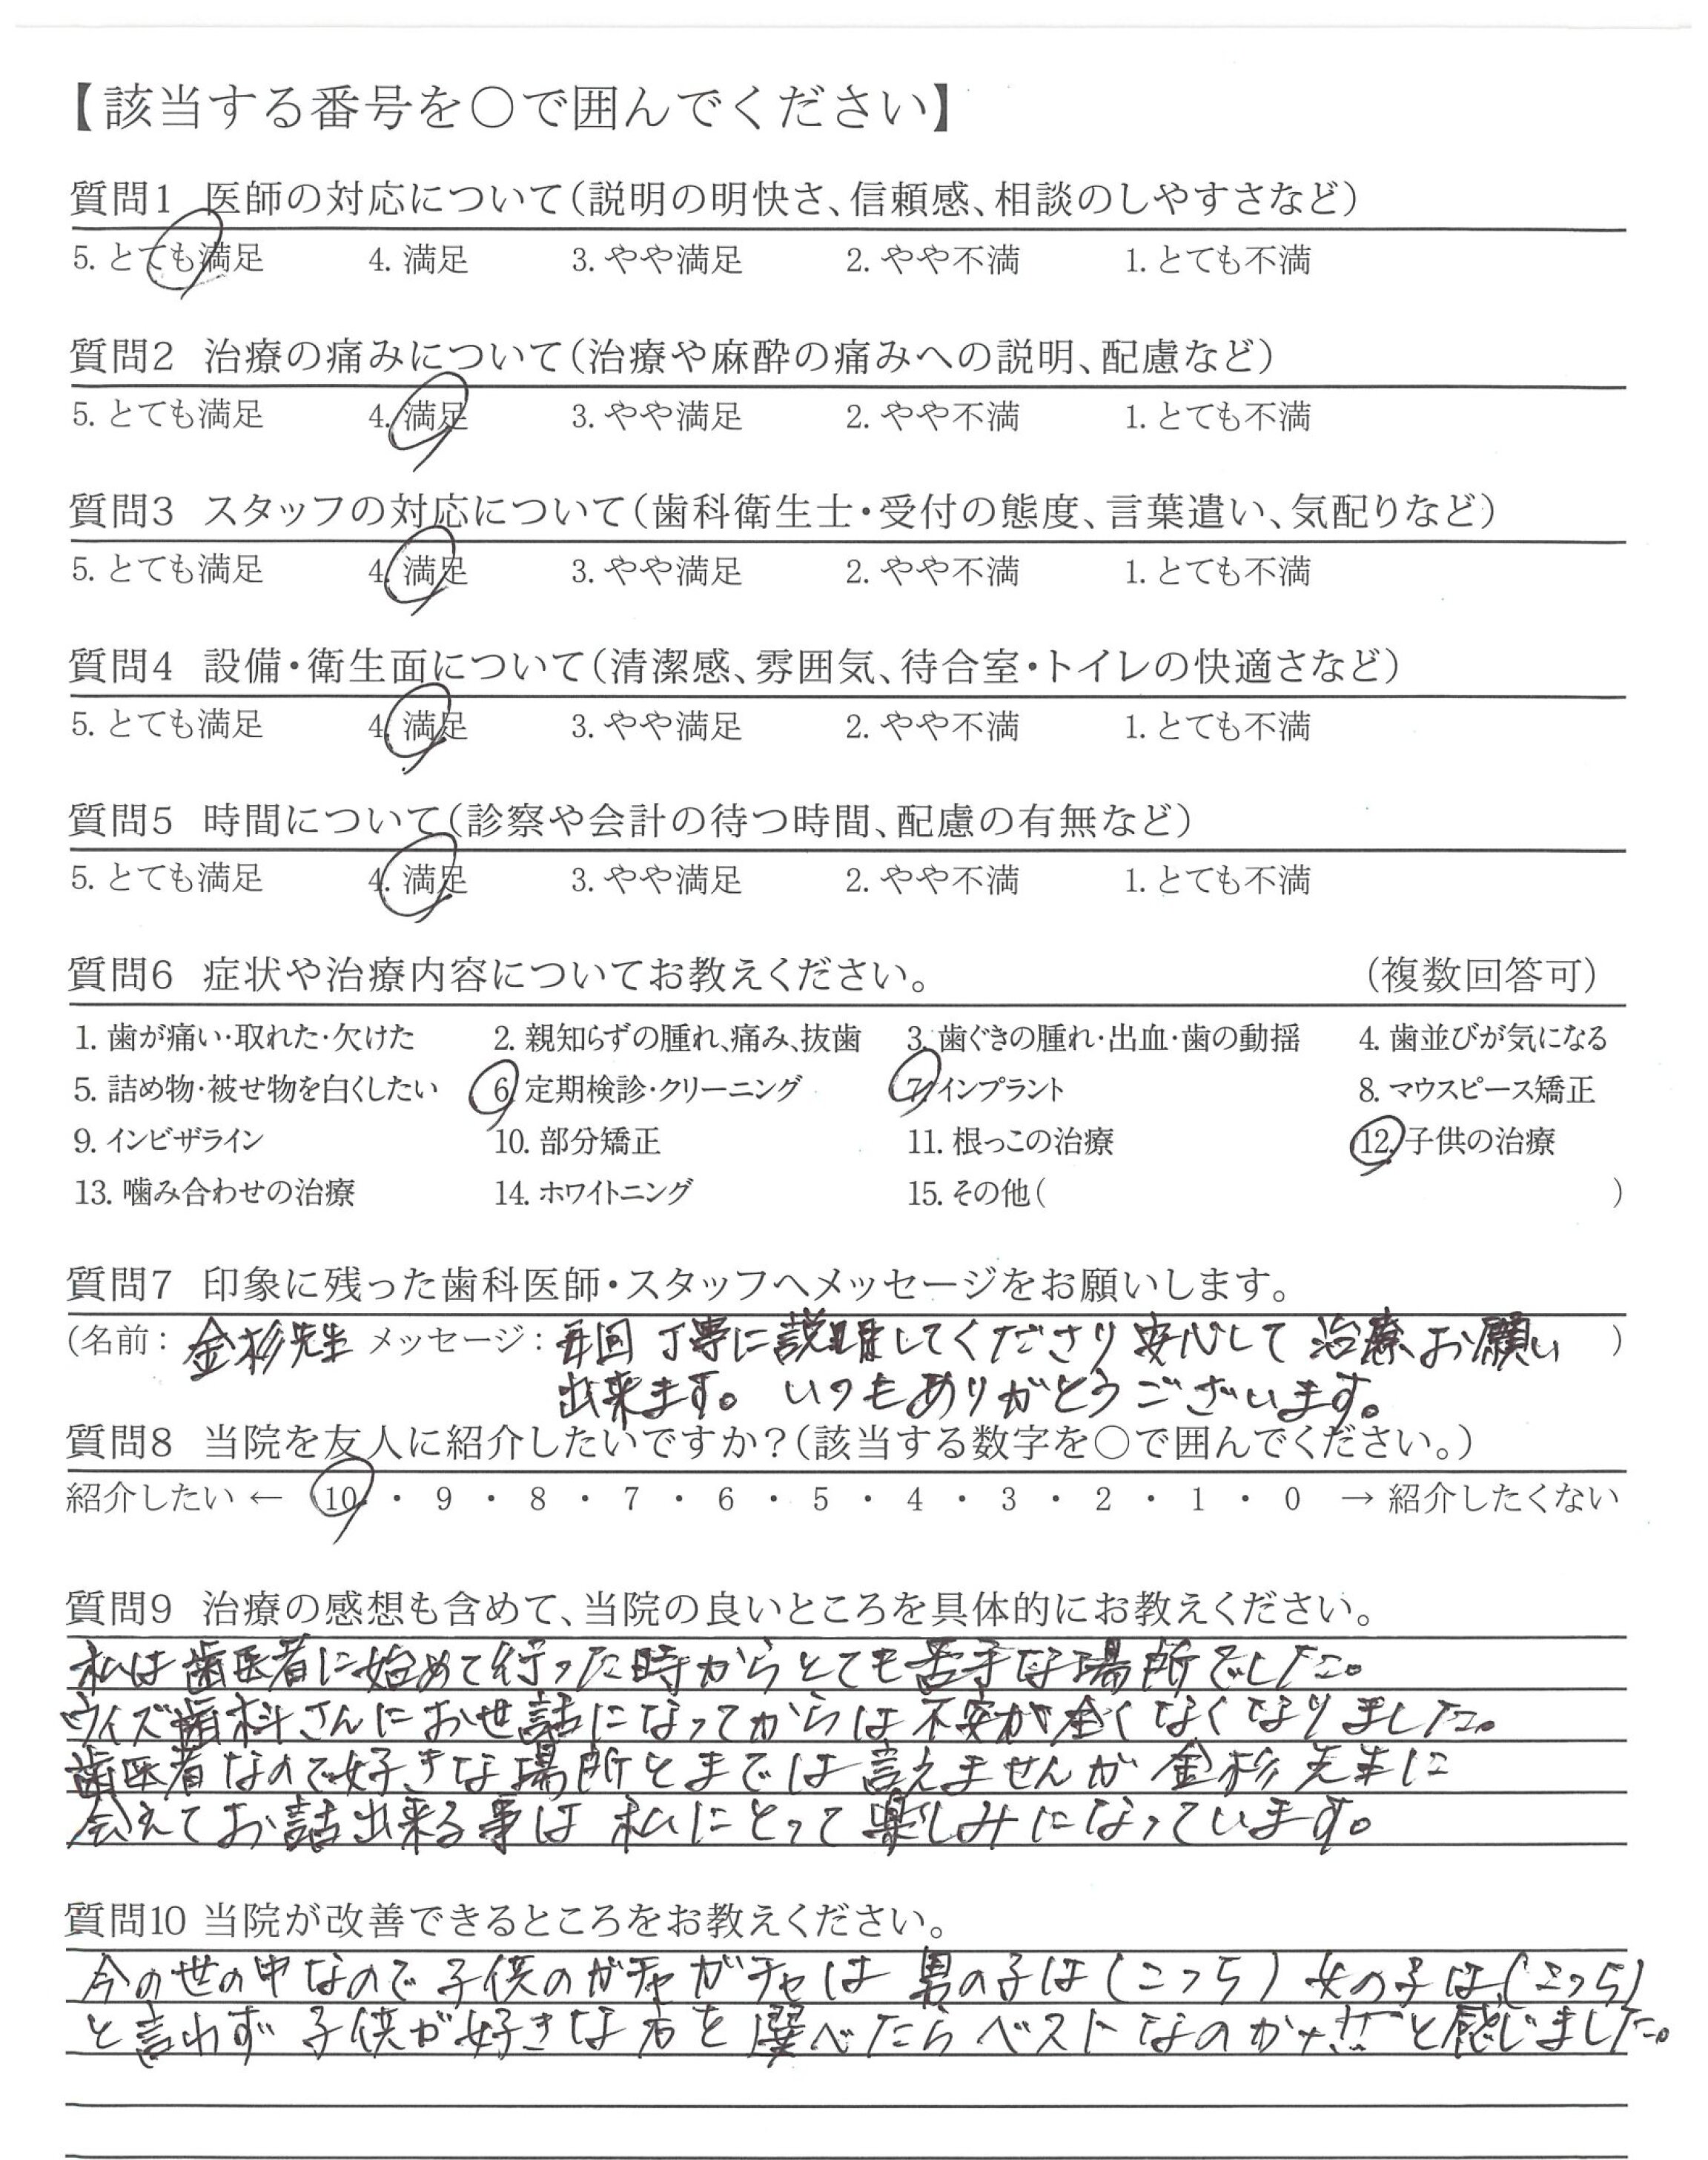 【該当する番号を○で囲んでください】
質問1 医師の対応について(説明の明快さ、信頼感、相談のしやすさなど)
5. とても満足 4. 満足 3. やや満足 2. やや不満 1. とても不満
質問2 治療の痛みについて(治療や麻酔の痛みへの説明、配慮など)
5. とても満足 4. 満足 3. やや満足 2. やや不満 1. とても不満
質問3 スタッフの対応について(歯科衛生士・受付の態度、言葉遣い、気配りなど)
5. とても満足 4. 満足 3. やや満足 2. やや不満 1. とても不満
質問4 設備・衛生面について(清潔感、雰囲気、待合室・トイレの快適さなど)
5. とても満足 4. 満足 3. やや満足 2. やや不満 1. とても不満
質問5 時間について(診察や会計の待つ時間、配慮の有無など)
5. とても満足 4. 満足 3. やや満足 2. やや不満 1. とても不満
質問6 症状や治療内容についてお教えください。 (複数回答可)
1. 歯が痛い・取れた・欠けた 2. 親知らずの腫れ、痛み、抜歯 3. 歯ぐきの腫れ・出血・歯の動揺 4. 歯並びが気になる
5. 詰め物・被せ物を白くしたい 6. 定期検診・クリーニング 7. インプラント 8. マウスピース矯正
9. インビザライン 10. 部分矯正 11. 根っこの治療 12. 子供の治療
13. 噛み合わせの治療 14. ホワイトニング 15. その他( )
質問7 印象に残った歯科医師・スタッフへメッセージをお願いします。
(名前: 金杉先生 メッセージ: 毎回 丁寧に説明してくださり 安心して 治療お願い )
出来ます。 いつもありがとうございます。
質問8 当院を友人に紹介したいですか?(該当する数字を○で囲んでください。)
紹介したい ← 10 ・ 9 ・ 8 ・ 7 ・ 6 ・ 5 ・ 4 ・ 3 ・ 2 ・ 1 ・ 0 → 紹介したくない
質問9 治療の感想も含めて、当院の良いところを具体的にお教えください。
私は歯医者に始めて行った時からとても苦手な場所でした。
ウィズ歯科さんにお世話になってからは不安が全くなくなりました。
歯医者なので好きな場所とまでは言えませんが 金杉先生に
会えてお話出来る事は 私にとって楽しみになっています。
質問10 当院が改善できるところをお教えください。
今の世の中なので子供のガチャガチャは 男の子は(こっち) 女の子は(こっち)
と言わず 子供が好きな方を選べたらベストなのかナ!!と感じました。